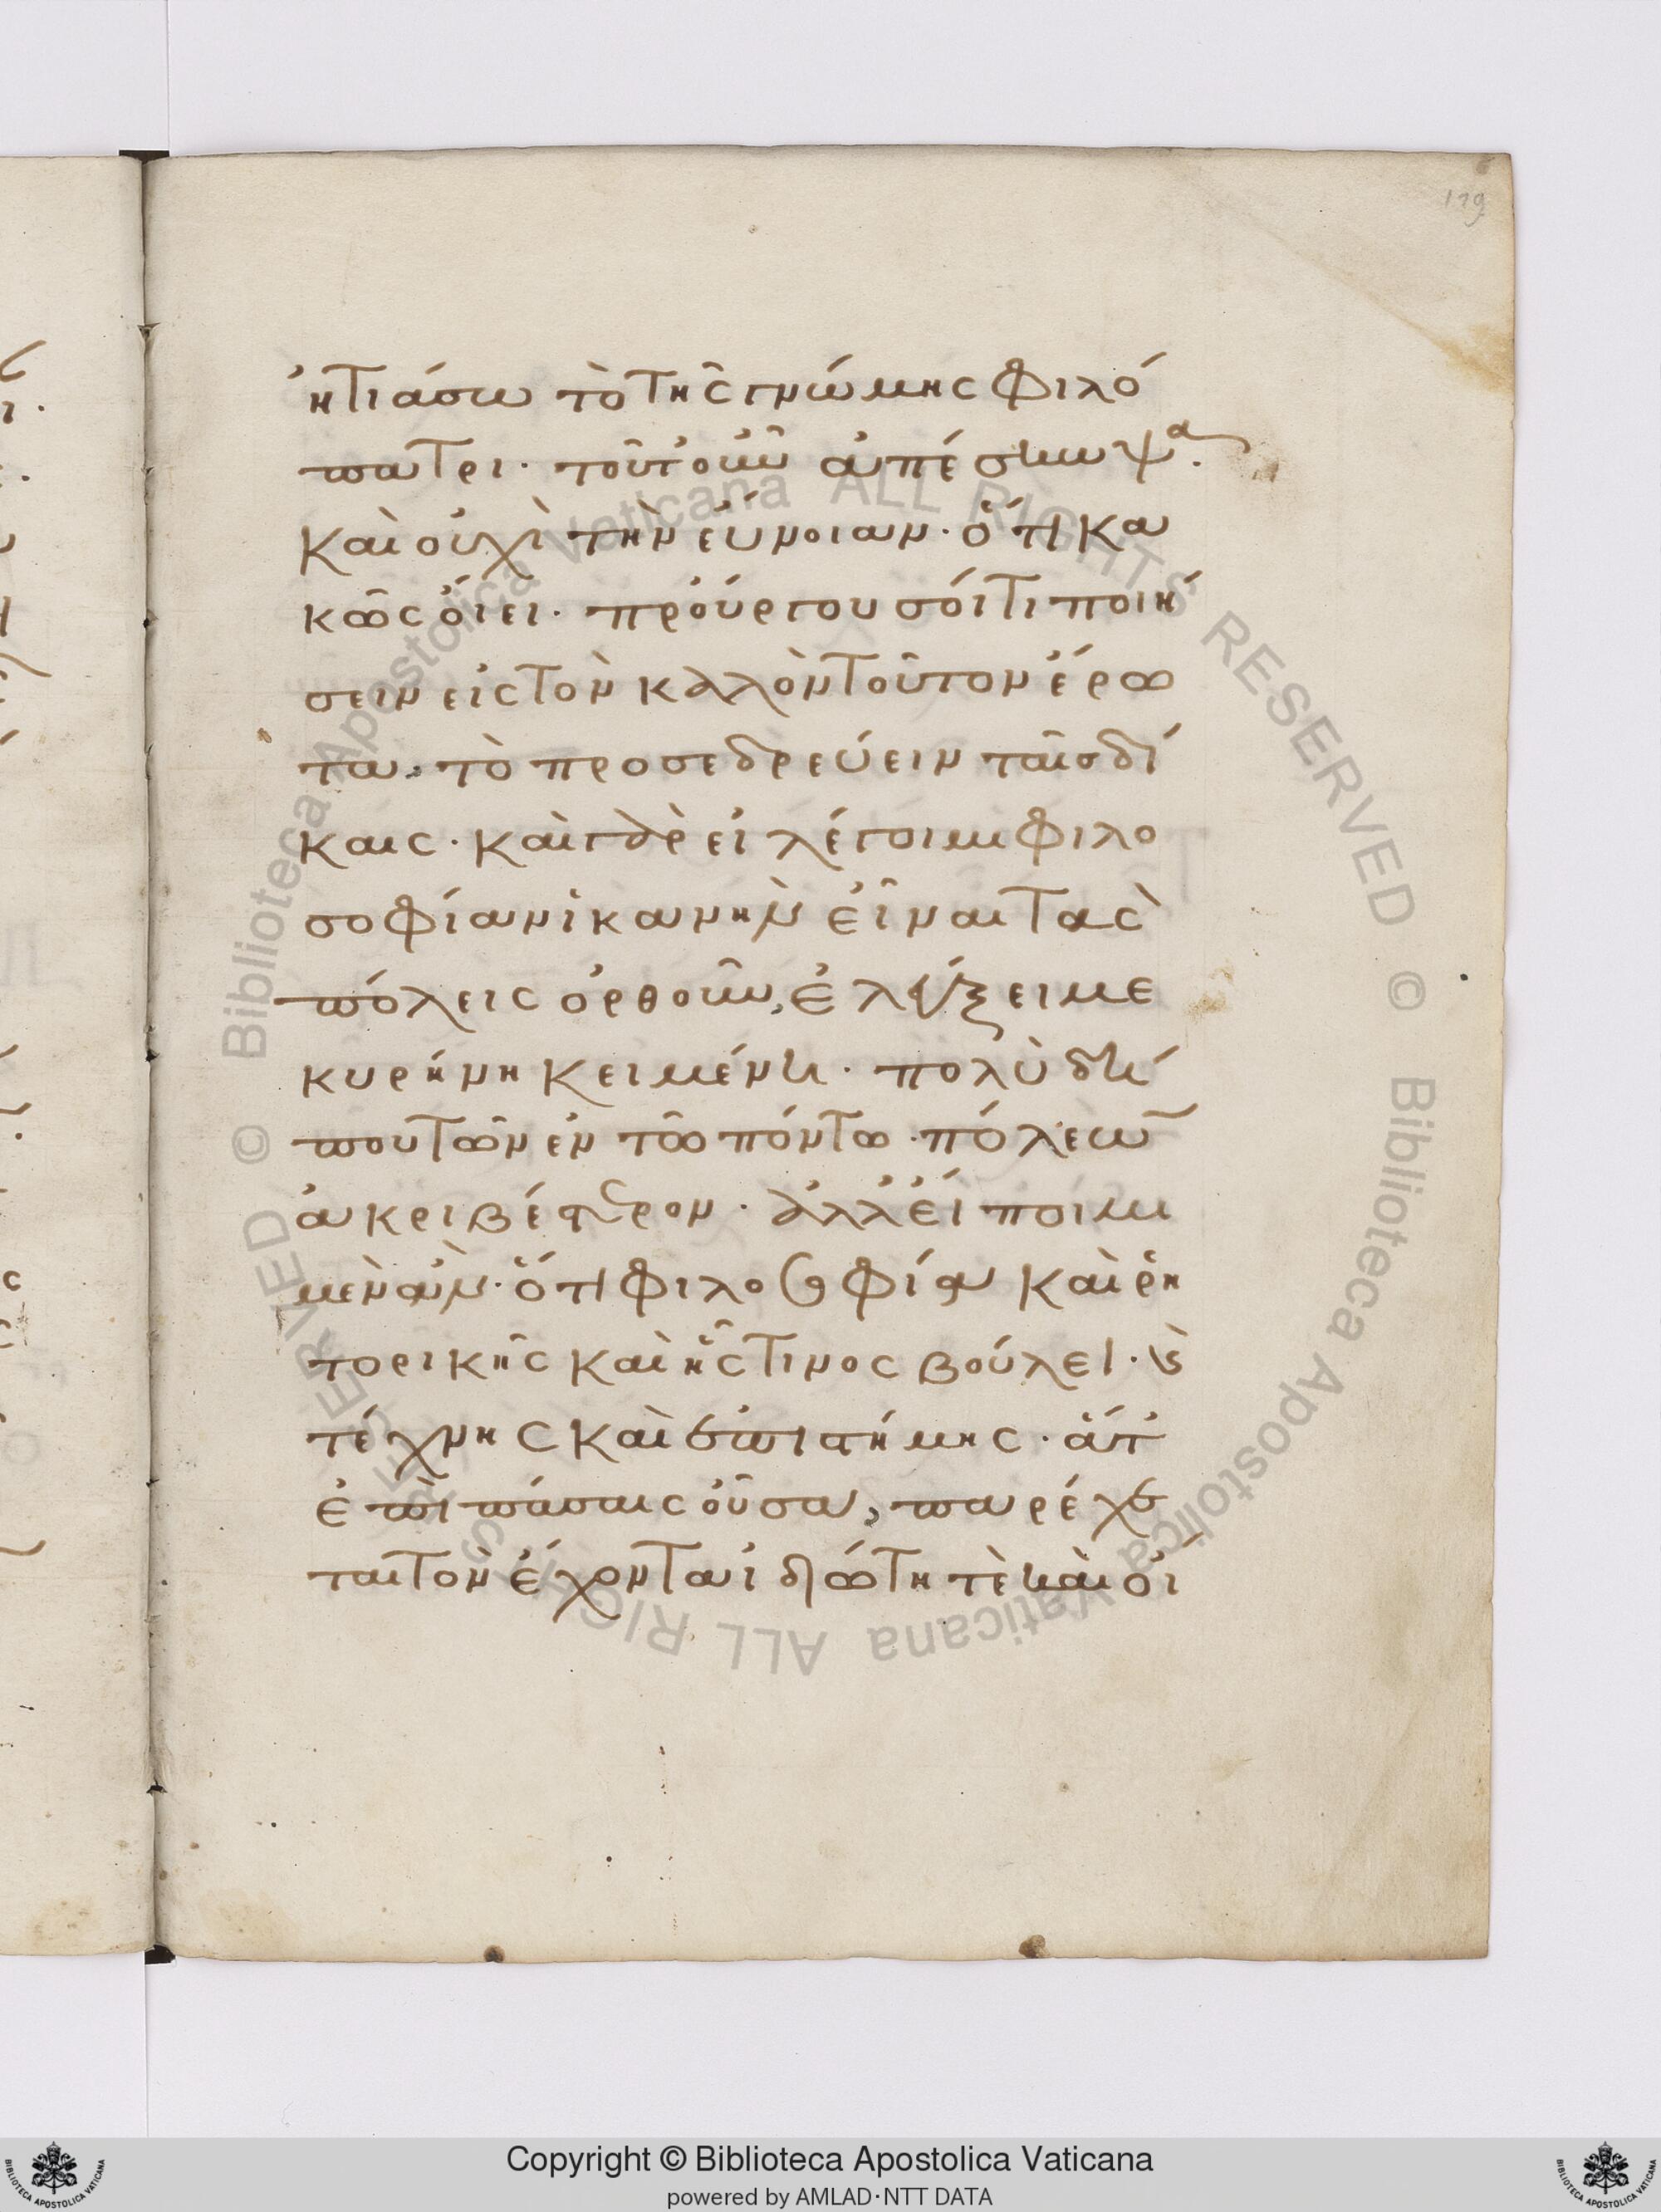 179
ἠτιάσω τὸ τῆς γνώμης φιλό
πατρι· τοῦτ οὖν ἀπέσκωψα.
καὶ οὐχὶ τὴν εὔνοιαν· ὅτι κα
κῶς ὄιει· προύργου σόι τι ποιή
σειν εἰς τὸν καλὸν τοῦτον ἔρω
τα, τὸ προσεδρεύειν ταῖσ δί
καις· καὶ γὰρ εἰ λέγοιμι φιλο
σοφίαν ἱκανὴν εἶναι τὰς
πόλεις ὀρθοῦν, ἐλέγξει με
κυρήνη κειμένη· πολὺ δή
που τῶν ἐν τῶ πόντω πόλεων
ἀκριβέστερον· ἀλλ' ἐίποιμι
μὲν ἀὰν· ὅτι φιλοσοφία καὶ ῥη
τορικῆς καὶ ἧς τινος βούλει· καὶ
τέχνης καὶ ἐπιστήμης· ἅτ'
ἐπὶ πάσαις οὖσα, παρέχε
ται τὸν ἔχοντα ἰδιώτη τὲ καὶ οἰ
Biblioteca Apostolica Vaticana ALL RIGHTS RESERVED ©
Biblioteca Apostolica Vaticana ALL RIGHTS RESERVED ©
Copyright © Biblioteca Apostolica Vaticana
powered by AMLAD·NTT DATA
BIBLIOTECA APOSTOLICA VATICANA
BIBLIOTECA APOSTOLICA VATICANA